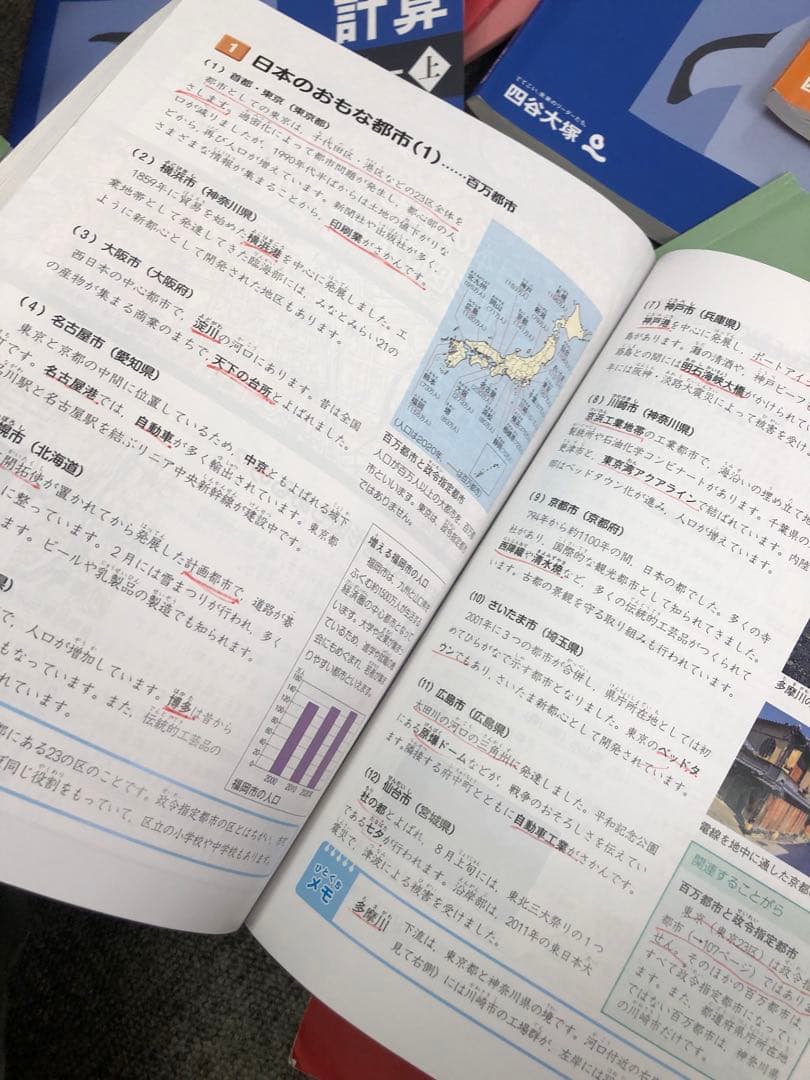 計算
上
ででこい、未来のリーダーたち。
四谷大塚
1 日本のおもな都市(1)……百万都市
(1) 首都・東京(東京都)
都市としての東京は、千代田区・港区などの23区全体を
さします。過密化によって都市問題が発生し、都心部の人
口が減りましたが、1990年代半ばからは土地の値下がりな
どから、再び人口が増えています。新聞社や出版社が多く、
さまざまな情報が集まることから、印刷業がさかんです。
(2) 横浜市(神奈川県)
1859年に貿易を始めた横浜港を中心に発展しました。工
業地帯として発達してきた臨海部には、みなとみらい21の
ように新都心として開発された地区もあります。
(3) 大阪市(大阪府)
西日本の中心都市で、淀川の河口にあります。昔は全国
の産物が集まる商業のまちで、天下の台所とよばれました。
(4) 名古屋市(愛知県)
東京と京都の中間に位置しているため、中京ともよばれる城下
町です。名古屋港では、自動車が多く輸出されています。東京都
品川駅と名古屋駅を結ぶリニア中央新幹線が建設中です。
幌市(北海道)
開拓使が置かれてから発展した計画都市で、道路が碁
に整っています。2月には雪まつりが行われ、多く
ます。ビールや乳製品の製造でも知られます。
県)
で、人口が増加しています。博多は昔から
もなっています。また、伝統的工芸品の
れています。
都にある23の区のことです。政令指定都市の区とはちがい、市町
ぼ同じ役割をもっていて、区立の小学校や中学校もあります。
百万都市と政令指定都市
人口が百万人以上の大都市を、百万
都市といいます。東京は、政令指定都市
ではありません。
増える福岡市の人口
福岡市の人口
(7) 神戸市(兵庫県)
神戸港を中心に発展し、ポートアイ
島があります。灘の清酒や、神戸ビーフ
路島との間には明石海峡大橋がかけられてい
年には阪神・淡路大震災によって被害を受け
(8) 川崎市(神奈川県)
京浜工業地帯の工業都市で、海沿いの埋め立て地
製鉄所や石油化学コンビナートがあります。千葉県の
更津市と、東京湾アクアラインで結ばれています。内陸
部はベッドタウン化が進み、人口が増えています。
(9) 京都市(京都府)
794年から約1100年の間、日本の都でした。多くの寺
社があり、国際的な観光都市として知られてきました。
西陣織や清水焼など、多くの伝統的工芸品がつくられて
います。古都の景観を守る取り組みも行われています。
(10) さいたま市(埼玉県)
2001年に3つの都市が合併し、県庁所在地としては初
めてひらがなで示す都市となりました。東京のベッドタ
ウンでもあり、さいたま新都心として開発されています。
(11) 広島市(広島県)
太田川の河口の三角州に発達しました。平和記念公園
にある原爆ドームなどが、戦争のおそろしさを伝えてい
ます。隣接する府中町とともに自動車工業がさかんです。
(12) 仙台市(宮城県)
杜の都とよばれ、8月上旬には、東北三大祭りの1つ
である七夕が行われます。沿岸部は、2011年の東日本大
震災で、津波による被害を受けました。
ひとくち
メモ
多摩川 下流は、東京都と神奈川県の境です。河口付近の右
見て右側)には川崎市の工場群が、左岸には羽
多摩川の
電線を地中に通した京都
関連することがら
百万都市と政令指定都市
東京(東京23区)は政令指
都市(→107ページ)ではあり
せん。そのほかの百万都市は
すべて政令指定都市になってい
ます。また、都道府県庁所在地
ではない百万都市は、神奈川県
の川崎市だけです。